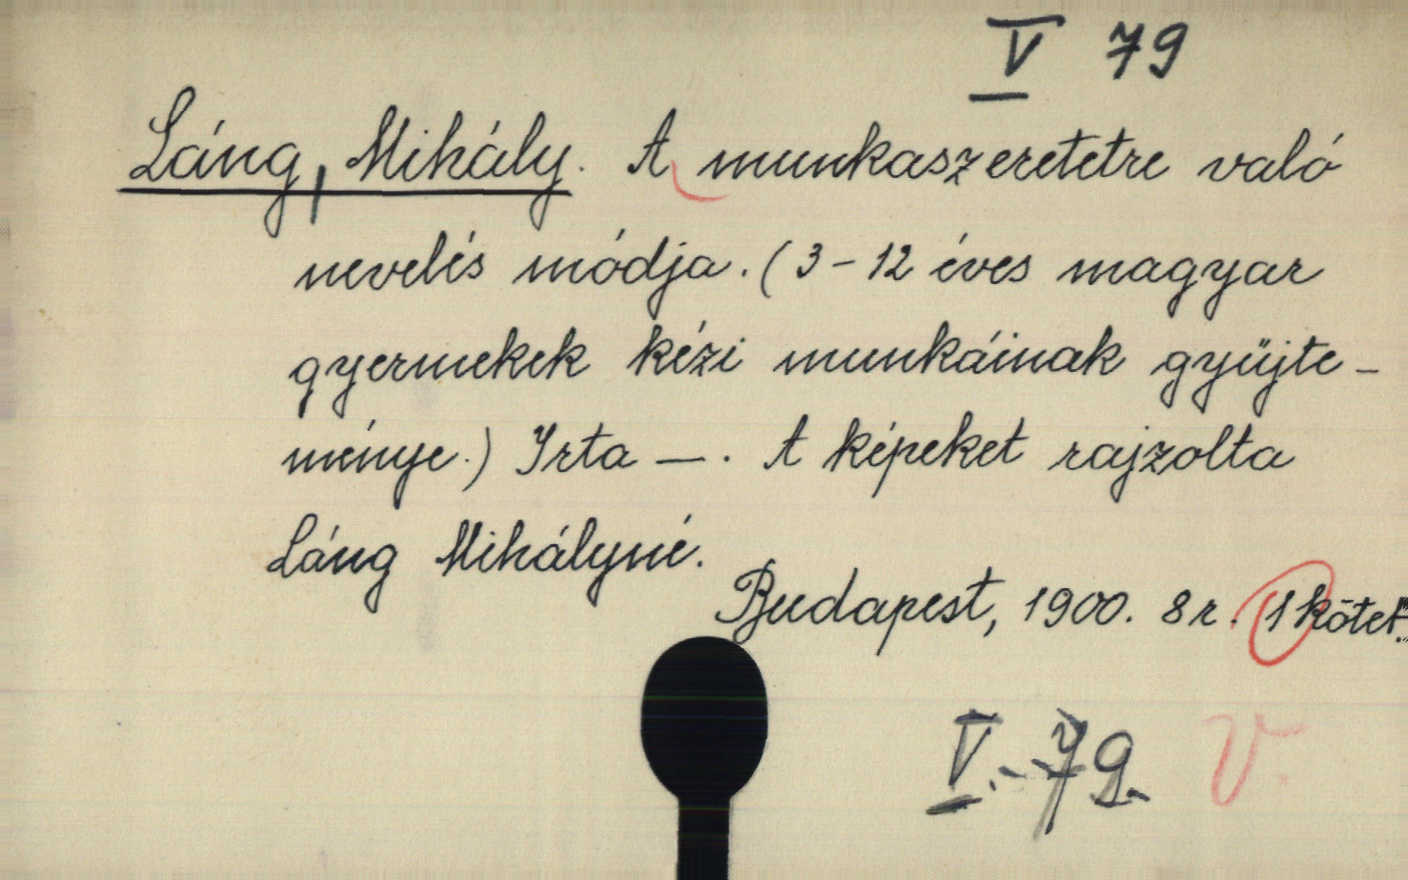 V 79
Láng, Mihály. A munkaszeretetre való
nevelés módja. (3-12 éves magyar
gyermekek kézi munkáinak gyüjte-
ménye.) Irta —. A képeket rajzolta
Láng Mihályné.
Budapest, 1900. 8r. 1 kötet.
V.-79.
V.